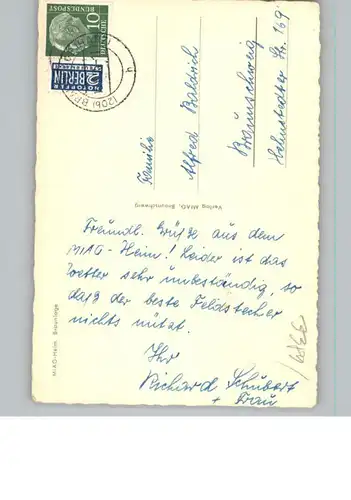 10
DEUTSCHE
BUNDESPOST
NOTOPFER
2 BERLIN
STEUERMARKE
(20b) BRA
Familie
Alfred Baldrich
Braunschweig
Helmstedter Str. 169
Verlag MIAG, Braunschweig
MIAG-Heim, Braunlage
Freundl. Grüße aus dem
MIAG-Heim! Leider ist das
Wetter sehr unbeständig, so
daß der beste Feldstecher
nichts nützt.
Ihr
Richard Schubert
+ Frau